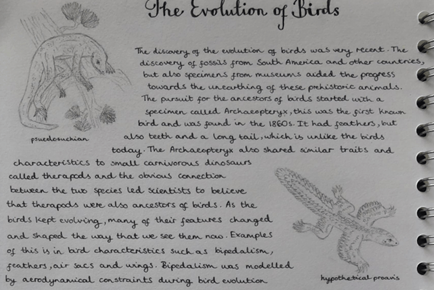 The Evolution of Birds
The discovery of the evolution of birds was very recent. The
discovery of fossils from South America and other countries,
but also specimens from museums aided the progress
towards the unearthing of these prehistoric animals.
The pursuit for the ancestors of birds started with a
specimen called Archaeopteryx, this was the first known
bird and was found in the 1860s. It had feathers, but
also teeth and a long tail, which is unlike the birds
today. The Archaeopteryx also shared similar traits and
pseudosuchian
characteristics to small carnivorous dinosaurs
called therapods and the obvious connection
between the two species led scientists to believe
that therapods were also ancestors of birds. As the
birds kept evolving, many of their features changed
and shaped the way that we see them now. Examples
of this is in bird characteristics such as bipedalism,
feathers, air sacs and wings. Bipedalism was modelled
by aerodynamical constraints during bird evolution
hypothetical proavis